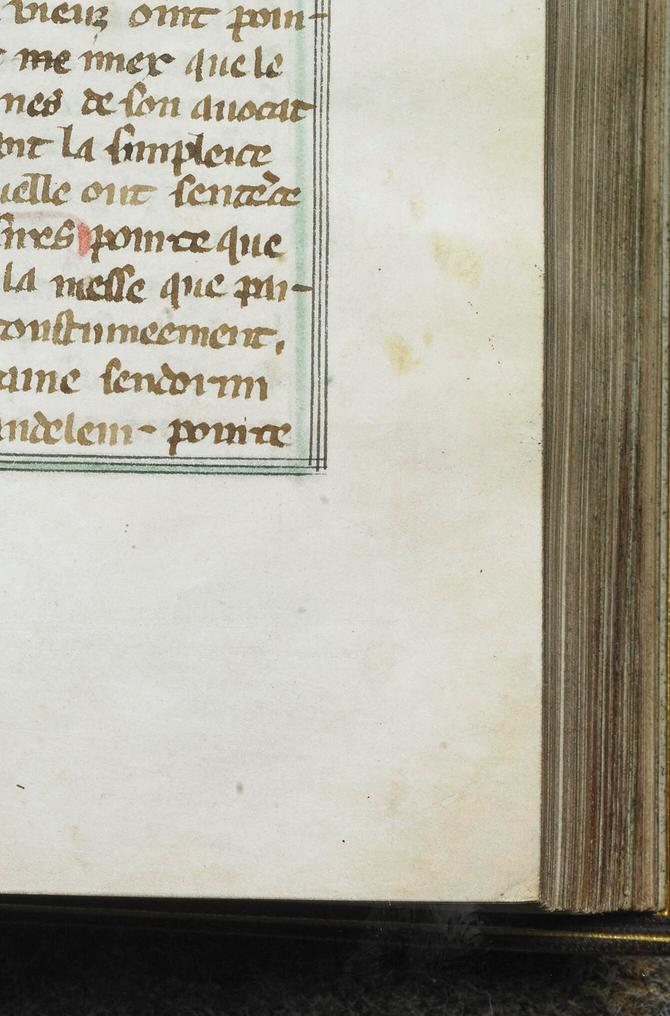 vieux ont poin-
me met que le
nes de son auocat
ont la simplece
uelle ont sentēce
sires pointe que
la messe que par-
coustumeement,
aine sendormi
andelein- pointe